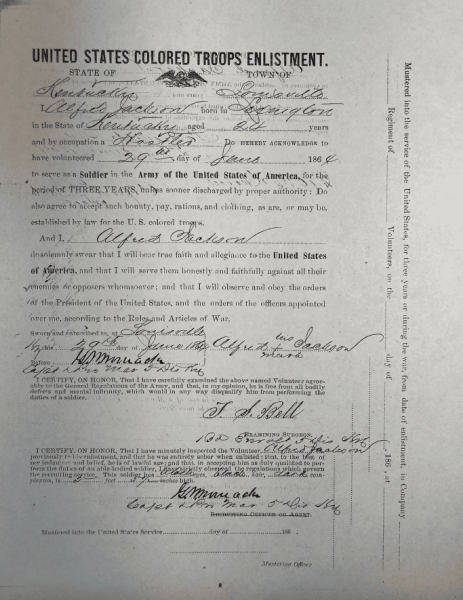 UNITED STATES COLORED TROOPS ENLISTMENT.
STATE OF TOWN OF
Kentucky Louisville
I, Alfred Jackson born in Lexington
in the State of Kentucky aged 24 years
and by occupation a Do HEREBY ACKNOWLEDGE to
have volunteered 29th day of June 1864
to serve as a Soldier in the Army of the United States of America, for the
period of THREE YEARS, unless sooner discharged by proper authority: Do
also agree to accept such bounty, pay, rations, and clothing, as are, or may be,
established by law for the U.S. colored troops.
And I, Alfred Jackson
do solemnly swear that I will bear true faith and allegiance to the United States
of America, and that I will serve them honestly and faithfully against all their
enemies or opposers whomsoever; and that I will observe and obey the orders
of the President of the United States, and the orders of the officers appointed
over me, according to the Rules and Articles of War.
Sworn and subscribed to, at Louisville
Ky this 29th day of June 1864 Alfred his Jackson
Before mark
Capt & Pro Mar 5 Dis Ky
I CERTIFY, ON HONOR, That I have carefully examined the above named Volunteer agree-
able to the General Regulations of the Army, and that, in my opinion, he is free from all bodily
defects and mental infirmity, which would in any way disqualify him from performing the
duties of a soldier.
T. S. Bell
EXAMINING SURGEON.
5 Dis Ky
I CERTIFY, ON HONOR, That I have minutely inspected the Volunteer, Alfred Jackson
previously to his enlistment, and that he was entirely sober when enlisted; that, to the best of
my judgment and belief, he is of lawful age; and that, in accepting him as duly qualified to per-
form the duties of an able-bodied soldier, I have strictly observed the regulations which govern
the recruiting service. This soldier has eyes, hair, com-
plexion, is feet inches high.
Capt & Pro Mar 5 Dis Ky
RECRUITING OFFICER OR AGENT.
Mustered into the United States Service day of 186
Mustering Officer
Mustered into the service of the United States, for three years or during the war, from date of enlistment, in Company
Regiment of Volunteers, on the day of , 186 , at